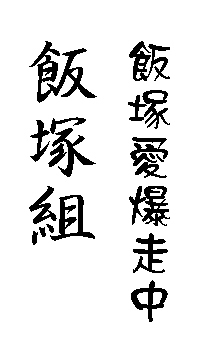 飯塚愛爆走中
飯塚組